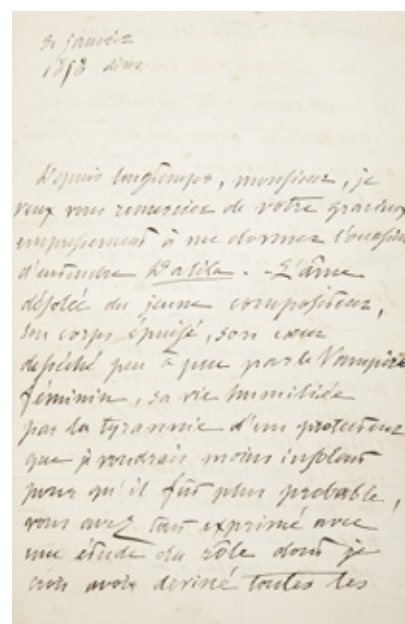 31 janvier
1858 dim
Depuis longtemps, monsieur, je
veux vous remercier de votre gracieux
empressement à me donner l'occasion
d'entendre Dalila. - L'âme
désolée du jeune compositeur,
son corps épuisé, son cœur
desséché peu à peu par le Vampire
féminin, sa vie humiliée
par la tyrannie d'un protecteur
que je voudrais moins insolent
pour qu'il fût plus probable,
vous avez tout exprimé avec
une étude du rôle dont je
crois avoir deviné toutes les